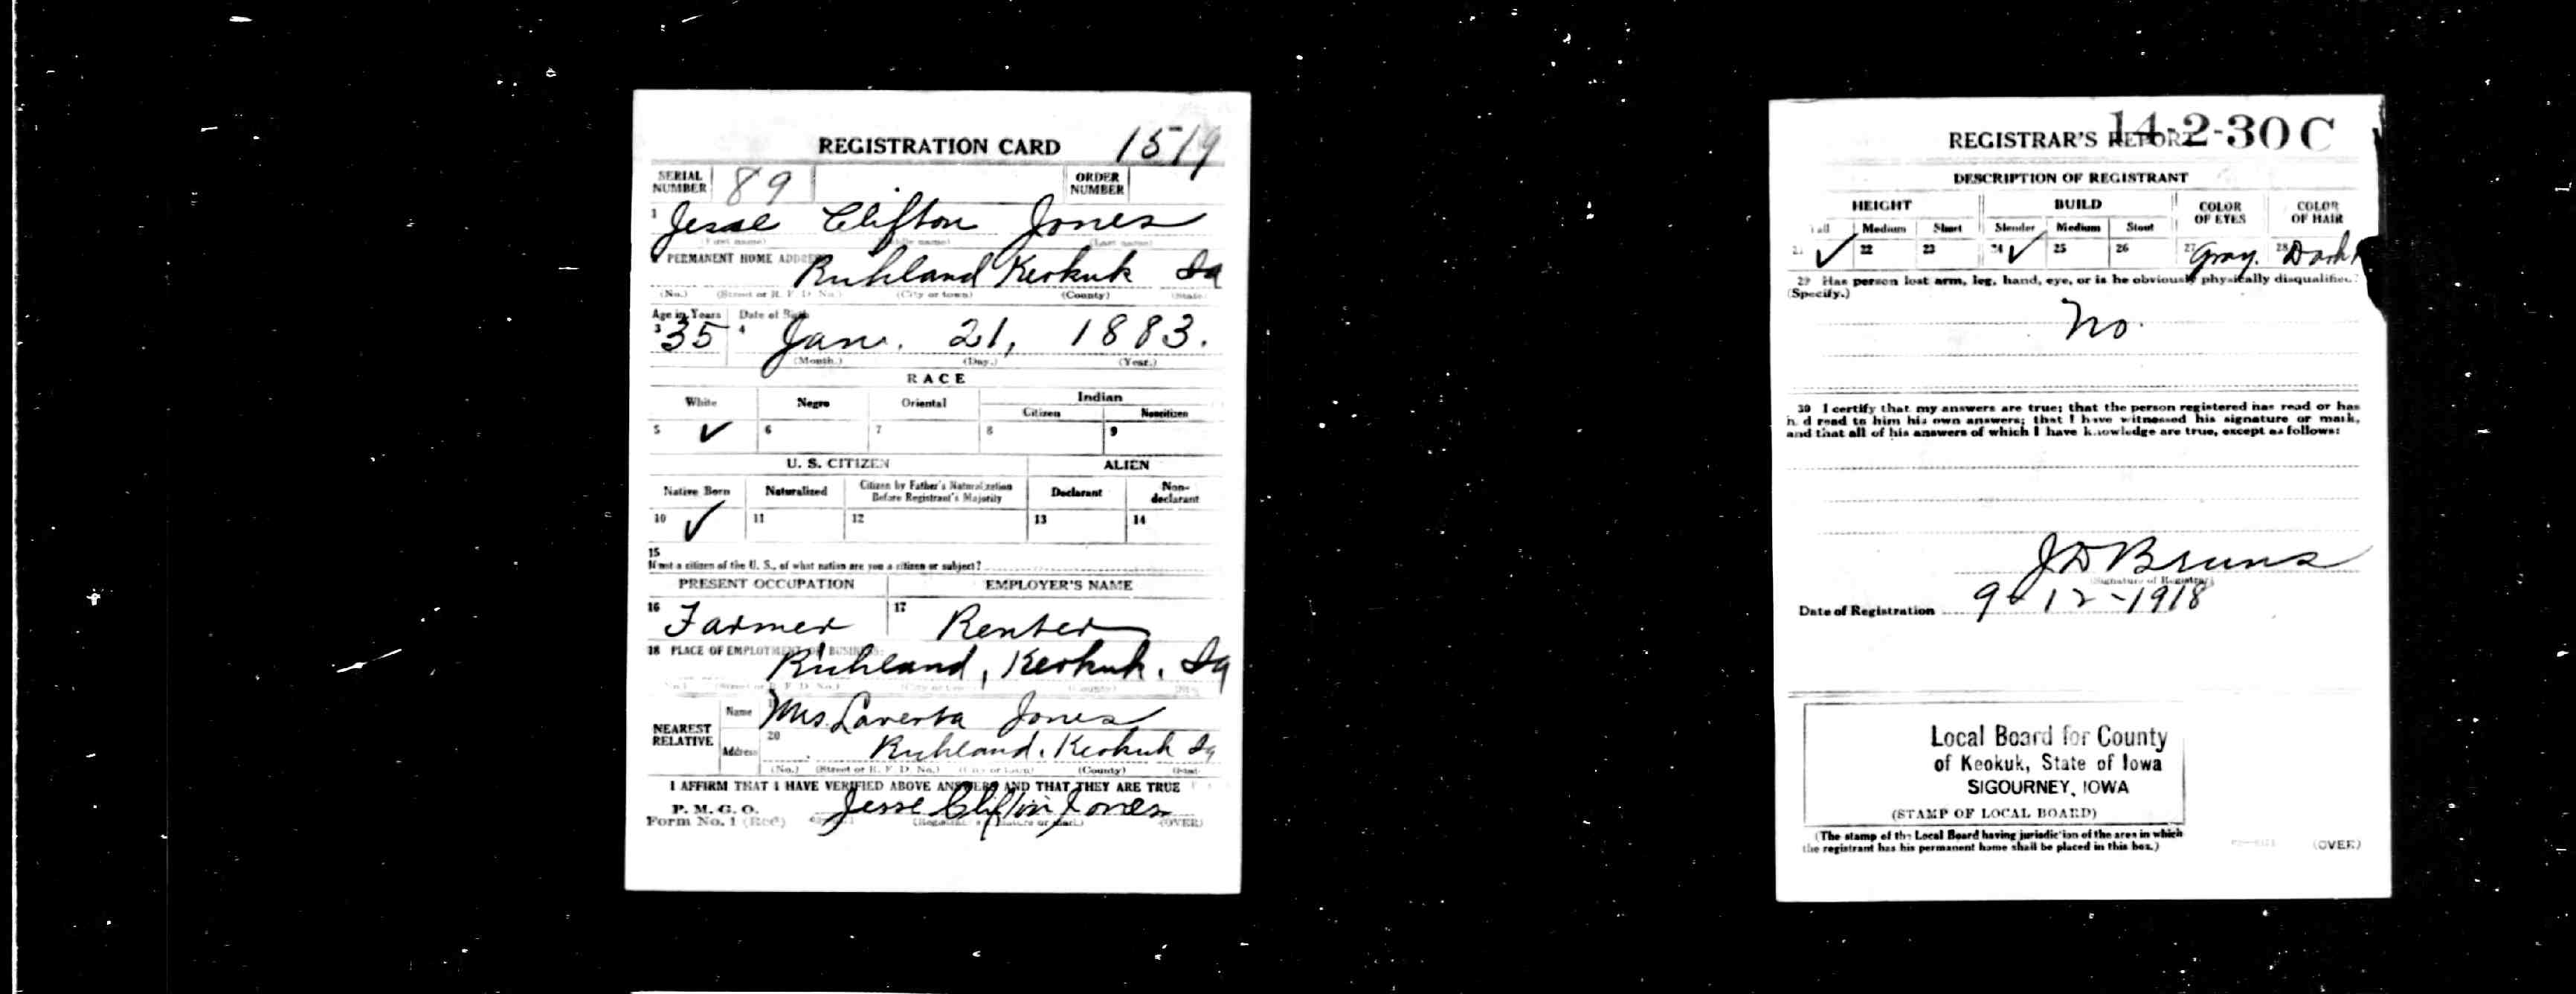 REGISTRATION CARD 1519
SERIAL NUMBER 89 ORDER NUMBER
1 Jesse Clifton Jones
(First name) (Middle name) (Last name)
PERMANENT HOME ADDRESS Richland Keokuk Ia
(No.) (Street or R. F. D. No.) (City or town) (County) (State)
Age in Years Date of Birth
3 35 4 Jan. 21, 1883.
(Month.) (Day.) (Year.)
RACE
White Negro Oriental Indian
Citizen Noncitizen
5 ✓ 6 7 8 9
U. S. CITIZEN ALIEN
Native Born Naturalized Citizen by Father's Naturalization Before Registrant's Majority Declarant Non-declarant
10 ✓ 11 12 13 14
15
If not a citizen of the U. S., of what nation are you a citizen or subject?
PRESENT OCCUPATION EMPLOYER'S NAME
16 Farmer 17 Renter
18 PLACE OF EMPLOYMENT OR BUSINESS:
Richland, Keokuk, Ia
(No.) (Street or R. F. D. No.) (City or town) (County) (State)
NEAREST RELATIVE Name Mrs. Laverta Jones
Address 20 Richland, Keokuk Ia
(No.) (Street or R. F. D. No.) (City or town) (County) (State)
I AFFIRM THAT I HAVE VERIFIED ABOVE ANSWERS AND THAT THEY ARE TRUE
P. M. G. O.
Form No. 1 (Red) Jesse Clifton Jones
(Registrant's signature or mark) (OVER)
REGISTRAR'S REPORT 14-2-30 C
DESCRIPTION OF REGISTRANT
HEIGHT BUILD COLOR OF EYES COLOR OF HAIR
Tall Medium Short Slender Medium Stout
21 ✓ 22 23 24 ✓ 25 26 27 Gray. 28 Dark
29 Has person lost arm, leg, hand, eye, or is he obviously physically disqualified?
(Specify.)
No.
30 I certify that my answers are true; that the person registered has read or has
had read to him his own answers; that I have witnessed his signature or mark,
and that all of his answers of which I have knowledge are true, except as follows:
J D Bruns
(Signature of Registrar)
Date of Registration 9-12-1918
Local Board for County
of Keokuk, State of Iowa
SIGOURNEY, IOWA
(STAMP OF LOCAL BOARD)
(The stamp of the Local Board having jurisdiction of the area in which
the registrant has his permanent home shall be placed in this box.)
(OVER)